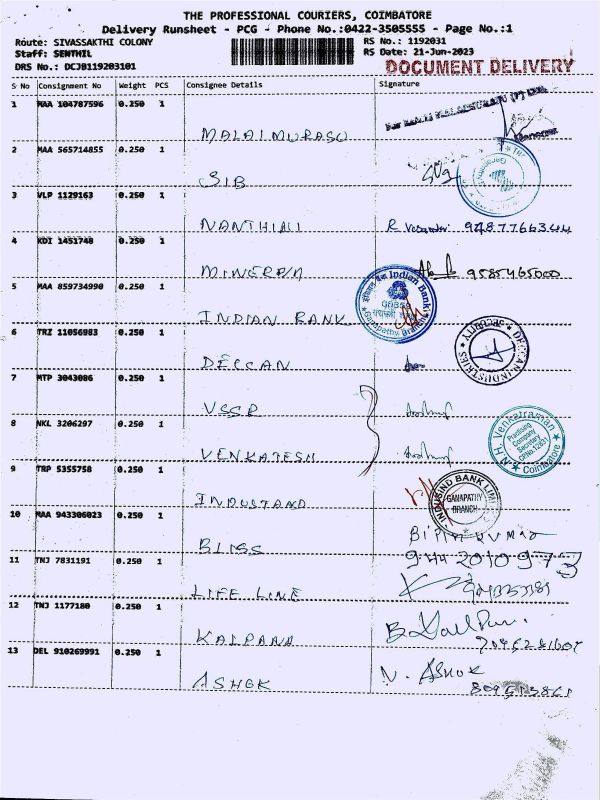 THE PROFESSIONAL COURIERS, COIMBATORE
Delivery Runsheet - PCG - Phone No.:0422-3505555 - Page No.:1
Route: SIVASSAKTHI COLONY
Staff: SENTHIL
DRS No.: DCJB119203101
RS No.: 1192031
RS Date: 21-Jun-2023
DOCUMENT DELIVERY
S No Consignment No Weight PCS Consignee Details Signature
1 MAA 104787596 0.250 1
MALAIMURASU
Manager
2 MAA 565714855 0.250 1
SIB
3 VLP 1129163 0.250 1
NANTHINI 9487766344
4 KDI 1451748 0.250 1
MINERVA 9585465000
5 MAA 859734990 0.250 1
INDIAN BANK
Indian Bank
Ganapathy Branch
6 TRZ 11056983 0.250 1
DECCAN
DECCAN INDUSTRIES
SECURITY
7 MTP 3043086 0.250 1
VSSR
8 NKL 3206297 0.250 1
VENKATESH
N.H. Venkatraman
Practising
Company
Secretary
Coimbatore
9 TRP 5355758 0.250 1
INDUSIND
INDUSIND BANK LIMITED
GANAPATHY
BRANCH
10 MAA 943306023 0.250 1
BLISS
944 2010973
11 TNJ 7831191 0.250 1
LIFE LINE
12 TNJ 1177180 0.250 1
KALPANA
13 DEL 910269991 0.250 1
ASHOK
N. ASHOK